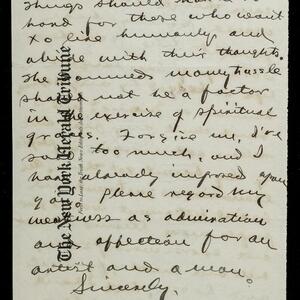 things should
hand for those who want
to live humanly and
alone with their thoughts.
The damned money hassle
should not be a factor
in the exercise of spiritual
graces. Forgive me, I've
said too much, and I
have already imposed upon
you. Please regard my
weakness as admiration
and affection for an
artist and a man.
Sincerely,
The New York Herald Tribune